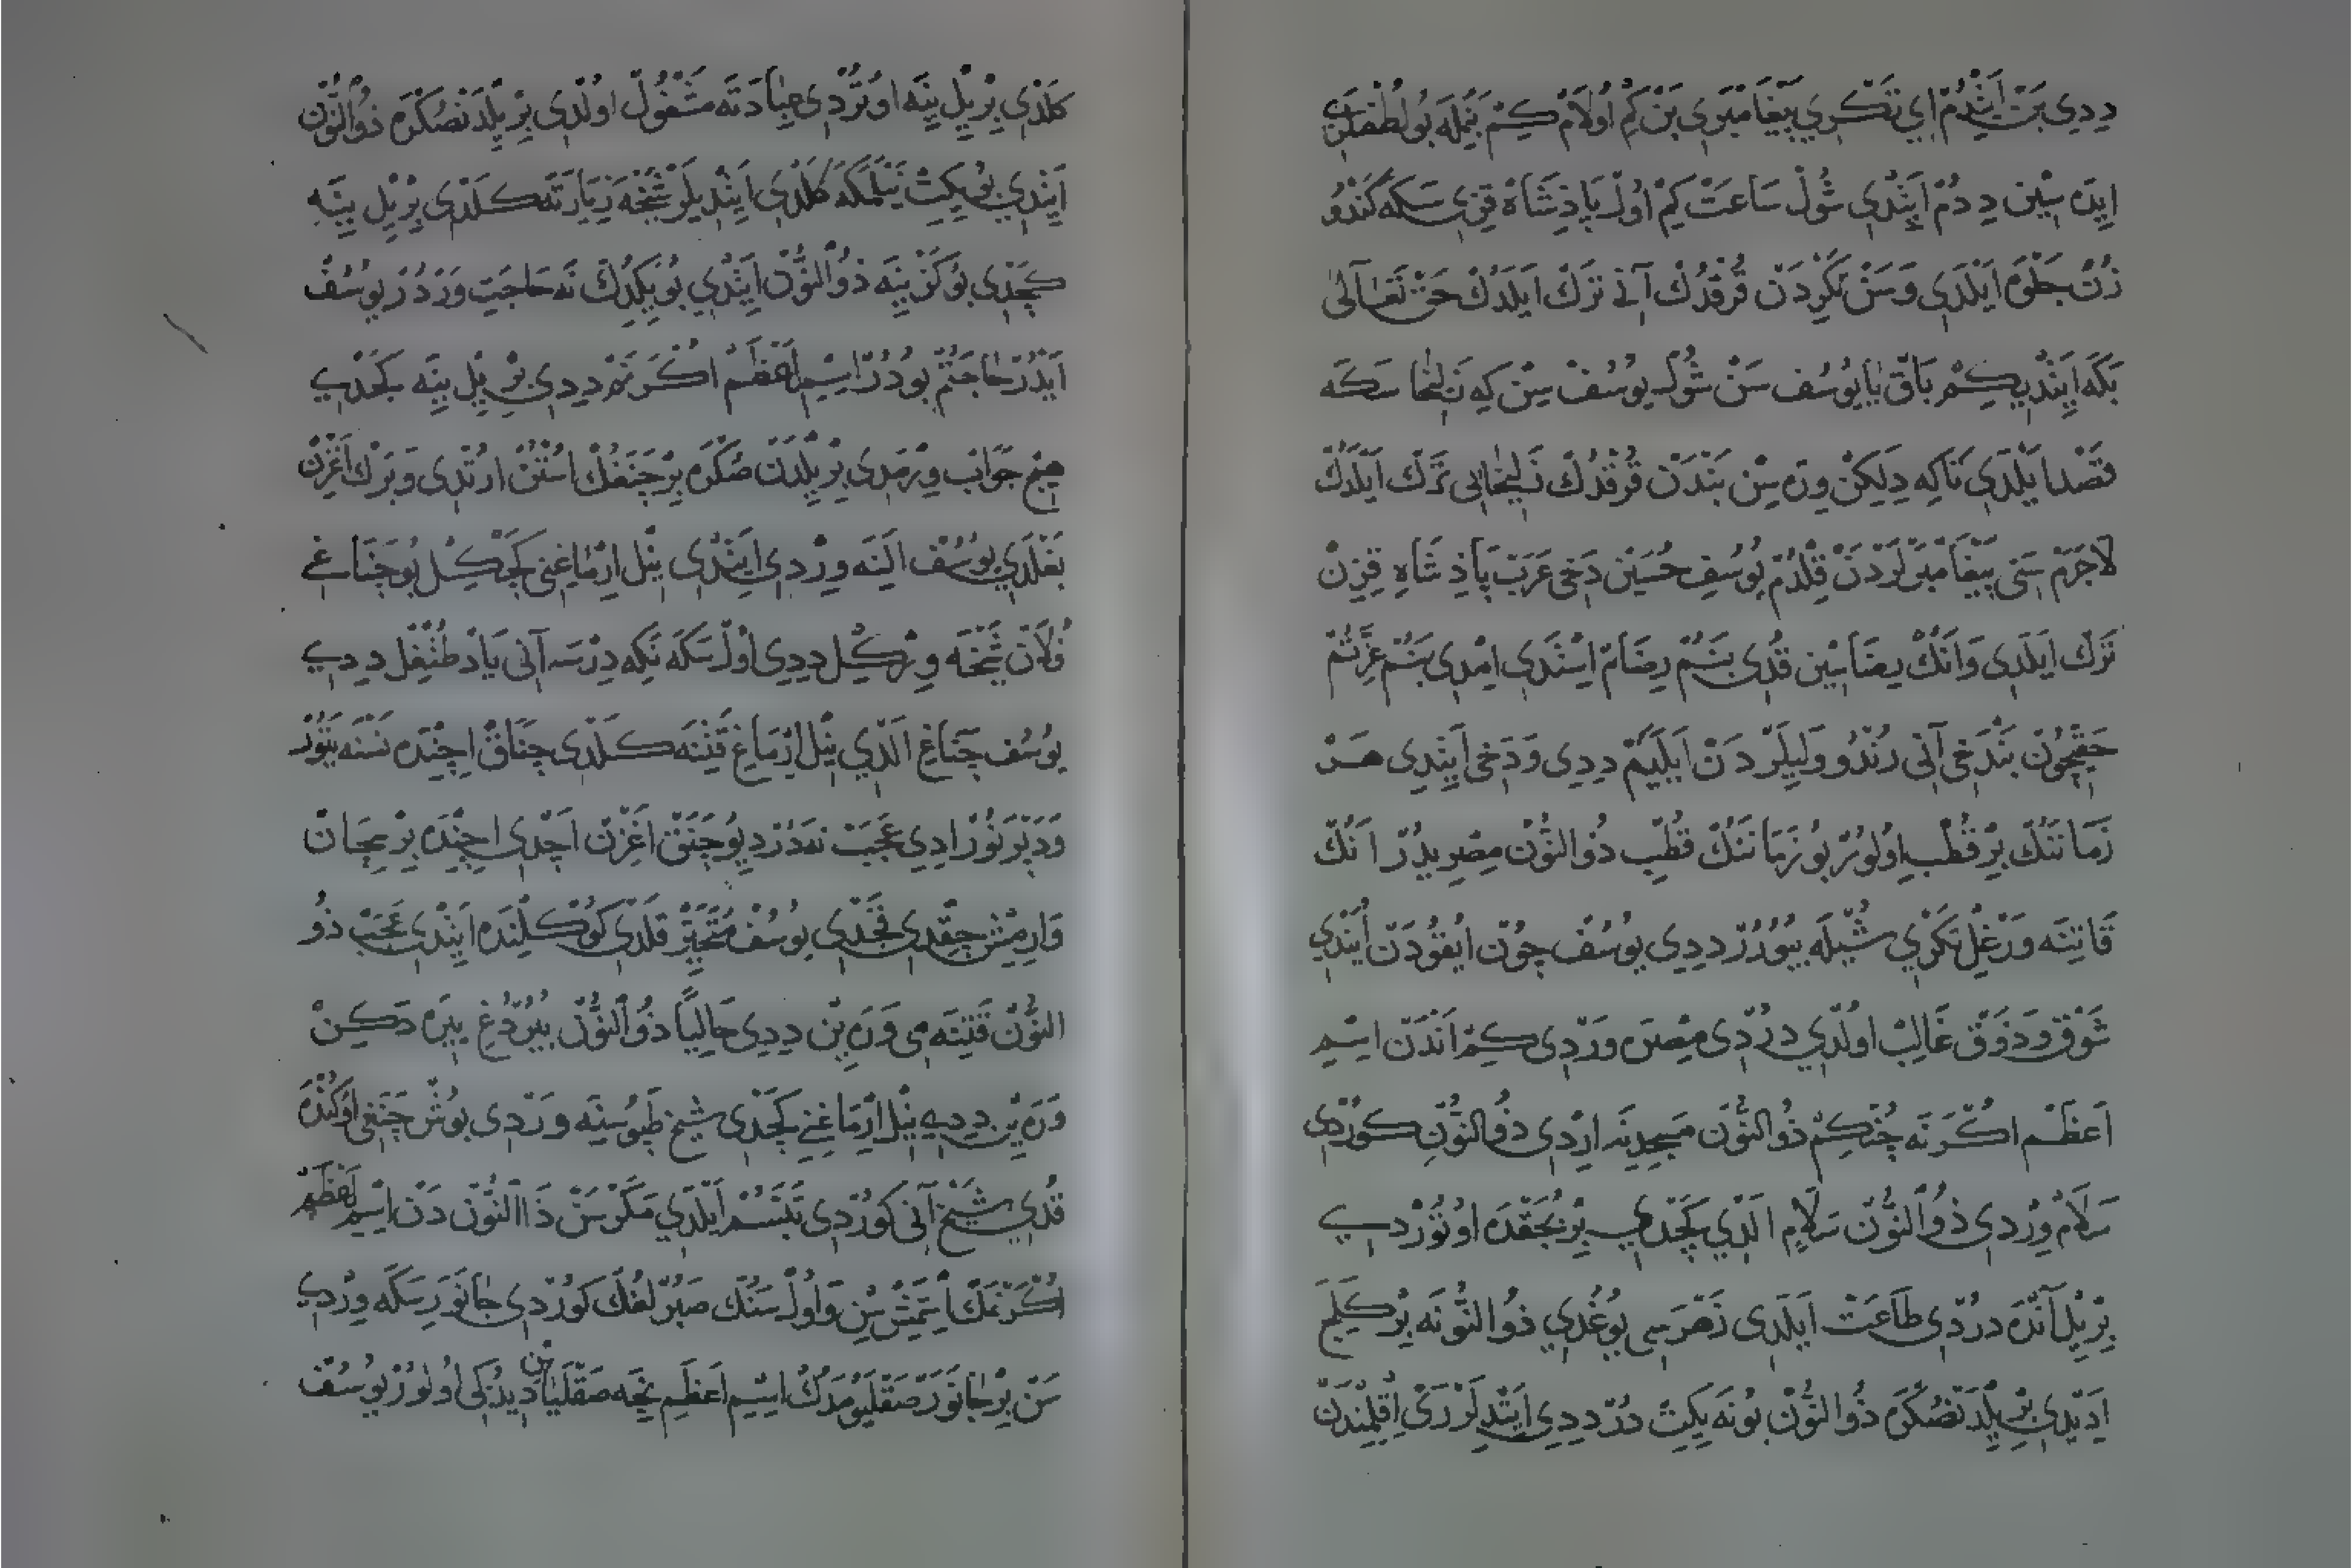 ددِی بَنْ اَیْتْدُمْ اَیْ تَنْكری پَیْغَامْبَرِی بَنْ كِمْ اُولَامْ كِمْ بَنُمْلَه بُو لُطْفْلَرِی
ایدَه سِیْن دِدُمْ اَیْتْدِی شُولْ سَاعَتْ كِمْ اُولْ پَاذِشَاهْ قِزِی سَكَه كَنْدُو
زُنْ جَلْوَه اَیْلَدِی وَسَنْ تَكْرِدَنْ قُرْقْدُكْ آنِی تَرْكْ اَیلَدُكْ حَقْ تَعَالَی
بَكَه اَیِتْدِی كِمْ بَاقْ یَا یُوسُف سَنْ شُولْ یُوسُفْ سِنْ كِه زَلِیْخَا سَكَه
قَصْد اَیْلَدِی تَاكِه دِلَكِنْ وِرَه سِنْ بَنْدَنْ قُرْقْدُكْ زَلِیْخَایِی تَرْكْ اَیْلَدُكْ
لَاجَرَمْ سَنِی پَیْغَامْبَرْلَرْدَنْ قِلْدُمْ یُوسُفِ حُسَیْن دَخِی عَرَبْ پَاذِشَاهِ قِزِنْ
تَرْكْ اَیْلَدِی وَانَكْ رِضَاسِیْن قُدِی بَنُمْ رِضَامْ اِسْتَدِی اِمْدِی بَنُمْ عِزَّتُمْ
حَقِّچُونْ بَنْدَخِی آنِی رُنْدُو وَلِیلَرْدَنْ اَیْلَیَمْ ددِی وَدَخِی اَیِتْدِی هَرْ
زَمَانَنُكْ بِرْ قُطْبِ اُولُورْ بُو زَمَانَنُكْ قُطْبِ ذُوالنُّونْ مِصْرِیدُرْ اَنُكْ
قَاتِنَه وَرْغِلْ تَكْرِی شُیْلَه بُیُورُرْ ددِی یُوسُفْ چُونْ اُیْقُودَنْ اُیَنْدِی
شَوْقْ وَذَوْقْ غَالِبْ اولْدِی دُرْدِی مِصْرَه وَرْدِی كِمْ اَنْدَنْ اِسْمِ
اَعْظَمْ اُكْرَنَه چُنْكِمْ ذُوالنُّونْ مَسْجِدِنَه اِرْدِی ذُوالنُّونِ كُورْدِی
سَلَامْ وِرْدِی ذُوالنُّونْ سَلَامِ الْدِی كَچْدِی بِرْ بُجَقْدَه اوتُوْرْدِی
بِرْ یِلْ آنْدَه دُرْدِی طَاعَتْ اَیْلَدِی زَهْرَسِی یُوغُدِی ذُوالنُّونَه بِرْ كَلِجِ
اِدَیِدِی بِرْ یِلْدَنْصُكْرَه ذُوالنُّونْ بُونَه یِكِتْ دُرْ ددِی اَیْتْدِلَرْ رَیْ اِقْلِمِنْدَنْ
كَلْدِی بِرْ یِلْ یِنَه اوتُرْدِی عِبَادَتَه مَشْغُولْ اولْدِی بِرْ یِلْدَنْصُكْرَه ذُوالنُّونْ
اَیِتْدِی بُو یِكِتْ نَیْلَمَكَه كَلْدِی اَیِتْدِیلَرْ شَیْخَه زِیَارَتَه كَلْدِی بِرْ یِلْ یِنَه
كَچْدِی بُو كَزْ یِنَه ذُوالنُّونْ اَیِتْدِی بُو یِكِدُكْ نَه حَاجَتِ وَرْدُرْ یُوسُفْ
اَیْدُرْ حَاجَتُمْ بُودُرْ اِسْمِ اَعْظَمْ اُكْرَنَمْ ددِی بِرْ یِلْ یِنَه كَچْدِی
هِیچْ جَوَابْ وِرْمَدِی بِرْ یِلْدَنْ صُكْرَه بِرْ چَنَغُكْ اُسْتُنْ اُرْتْدِی وَبَرْكْ اَغْزِنْ
بَغْلَدِی یُوسُفْ اَلِنَه وِرْدِی اَیِتْدِی نِیْلْ اِرْمَاغِنِی كَچْكِلْ بُو چَنَاغِی
فُلَانْ شَیْخَه وِرْكِلْ ددِی اولْ سَكَه نَكِه دِرْسَه آنِی یَادْ طُتْغِلْ ددِی
یُوسُف چَنَاغِ الْدِی نِیْلْ اِرْمَاغِ قَتِنَه كَلْدِی چَنَاقْ اِچِنْدَه نَسْنَه یَتُوْرْ
وَدَپْرَنُورْ اِدِی عَجَبْ نَه دُرْ دِیُو چَنَقْ اَغْزِنْ اَچْدِی اِچِنْدَه بِرْ سِچَانْ
وَارِمِشْ چِقْدِی قَچْدِی یُوسُفْ مُتَحَیِّرْ قَلْدِی كَوُكْلِنْدَه اَیِتْدِی عَجَبْ ذُو
النُّونْ قَتِنَه مِی وَرَه یِنْ ددِی حَالِیَا ذُوالنُّونْ بُیُرْدُغِ یِیرَه دَكِنْ
وَرَه یِنْ ددِی نِیْلْ اِرْمَاغِنِی كَچْدِی شَیْخْ طَپُوسِنَه وَرْدِی بُوشْ چَنَغِی اُوكُنْدَه
قُدِی شَیْخْ آنِی كُورْدِی تَبَسُّمْ اَیْلَدِی مَكَرْ سَنْ ذَاالنُّونْ دَنْ اِسْمِ اَعْظَمْ
اُكْرَنْمَكْ اِسْتَمِشْسِنْ وَاوُلْ سَنُكْ صَبُرْلُغُكْ كُورْدِی جَانَوَرِ سَكَه وِرْدِی
سَنْ بِرْ جَانَوَرْ صَقْلَیُومَدُكْ اِسْمِ اَعْظَمِ نِچَه صَقْلَیَاسِنْ دِیدُكِی اُولُورْ یُوسُفْ